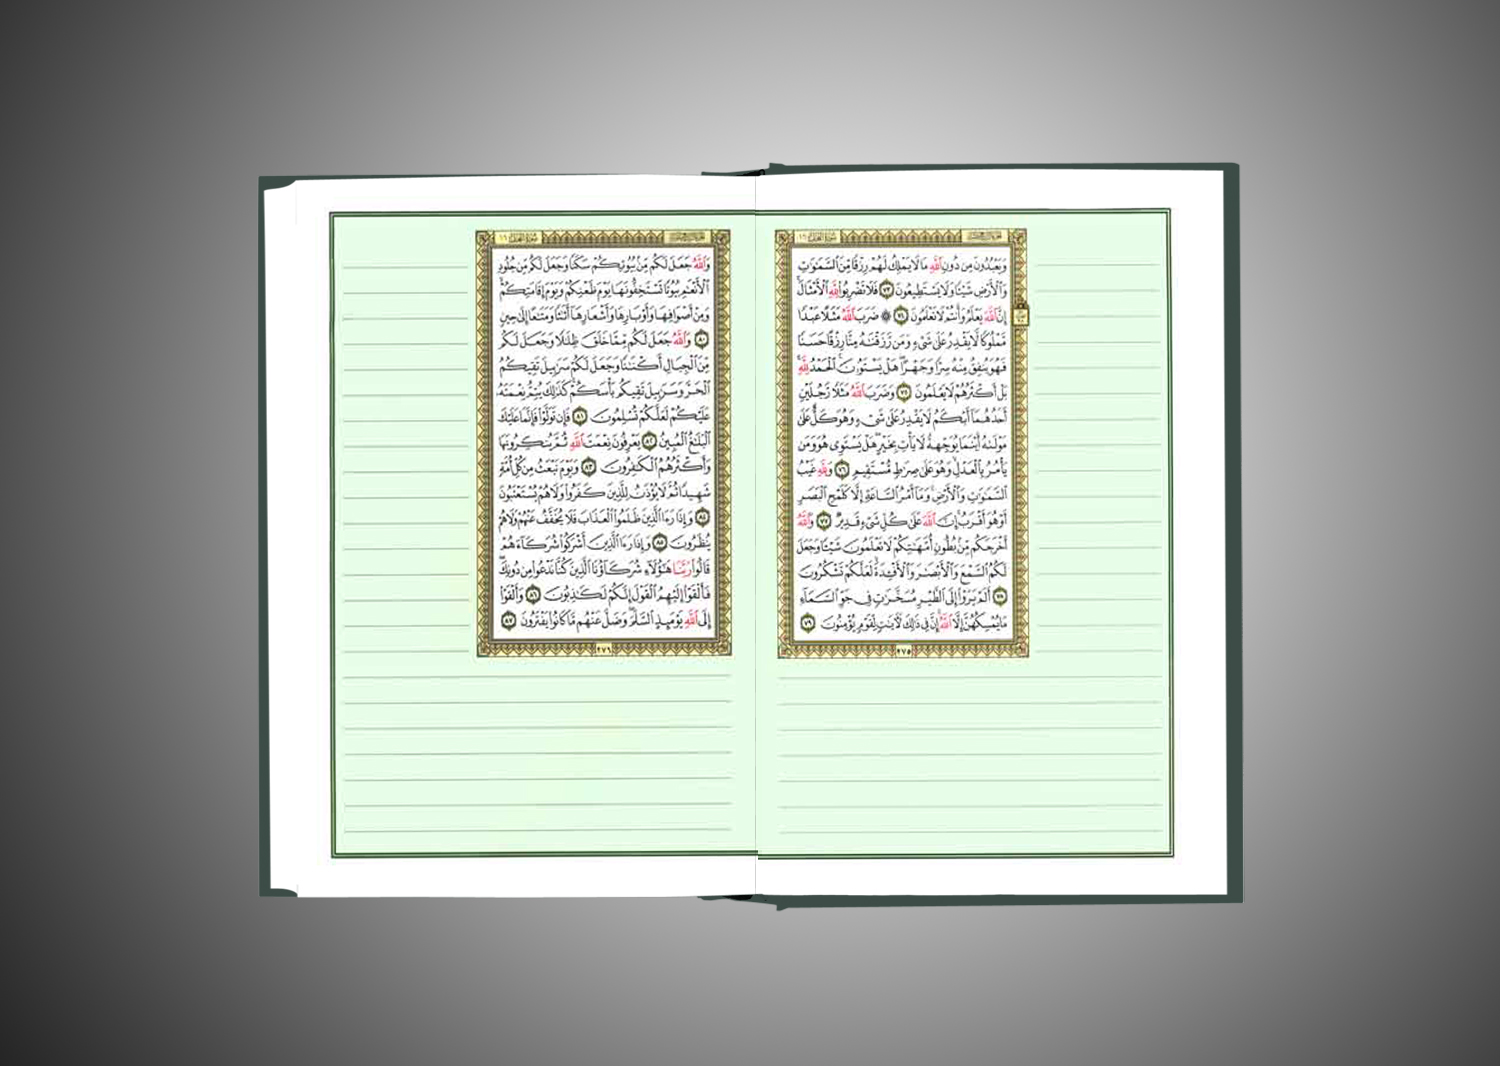 وَيَعْبُدُونَ مِن دُونِ ٱللَّهِ مَا لَا يَمْلِكُ لَهُمْ رِزْقًا مِّنَ ٱلسَّمَٰوَٰتِ
وَٱلْأَرْضِ شَيْـًٔا وَلَا يَسْتَطِيعُونَ ٧٣ فَلَا تَضْرِبُوا۟ لِلَّهِ ٱلْأَمْثَالَ
إِنَّ ٱللَّهَ يَعْلَمُ وَأَنتُمْ لَا تَعْلَمُونَ ٧٤ ۞ ضَرَبَ ٱللَّهُ مَثَلًا عَبْدًا
مَّمْلُوكًا لَّا يَقْدِرُ عَلَىٰ شَىْءٍ وَمَن رَّزَقْنَٰهُ مِنَّا رِزْقًا حَسَنًا
فَهُوَ يُنفِقُ مِنْهُ سِرًّا وَجَهْرًا هَلْ يَسْتَوُۥنَ ٱلْحَمْدُ لِلَّهِ
بَلْ أَكْثَرُهُمْ لَا يَعْلَمُونَ ٧٥ وَضَرَبَ ٱللَّهُ مَثَلًا رَّجُلَيْنِ
أَحَدُهُمَآ أَبْكَمُ لَا يَقْدِرُ عَلَىٰ شَىْءٍ وَهُوَ كَلٌّ عَلَىٰ
مَوْلَىٰهُ أَيْنَمَا يُوَجِّههُّ لَا يَأْتِ بِخَيْرٍ هَلْ يَسْتَوِى هُوَ وَمَن
يَأْمُرُ بِٱلْعَدْلِ وَهُوَ عَلَىٰ صِرَٰطٍ مُّسْتَقِيمٍ ٧٦ وَلِلَّهِ غَيْبُ
ٱلسَّمَٰوَٰتِ وَٱلْأَرْضِ وَمَآ أَمْرُ ٱلسَّاعَةِ إِلَّا كَلَمْحِ ٱلْبَصَرِ
أَوْ هُوَ أَقْرَبُ إِنَّ ٱللَّهَ عَلَىٰ كُلِّ شَىْءٍ قَدِيرٌ ٧٧ وَٱللَّهُ
أَخْرَجَكُم مِّنۢ بُطُونِ أُمَّهَٰتِكُمْ لَا تَعْلَمُونَ شَيْـًٔا وَجَعَلَ
لَكُمُ ٱلسَّمْعَ وَٱلْأَبْصَٰرَ وَٱلْأَفْـِٔدَةَ لَعَلَّكُمْ تَشْكُرُونَ
٧٨ أَلَمْ يَرَوْا۟ إِلَى ٱلطَّيْرِ مُسَخَّرَٰتٍ فِى جَوِّ ٱلسَّمَآءِ
مَا يُمْسِكُهُنَّ إِلَّا ٱللَّهُ إِنَّ فِى ذَٰلِكَ لَءَايَٰتٍ لِّقَوْمٍ يُؤْمِنُونَ ٧٩
٢٧٥
وَٱللَّهُ جَعَلَ لَكُم مِّنۢ بُيُوتِكُمْ سَكَنًا وَجَعَلَ لَكُم مِّن جُلُودِ
ٱلْأَنْعَٰمِ بُيُوتًا تَسْتَخِفُّونَهَا يَوْمَ ظَعْنِكُمْ وَيَوْمَ إِقَامَتِكُمْ
وَمِنْ أَصْوَافِهَا وَأَوْبَارِهَا وَأَشْعَارِهَآ أَثَٰثًا وَمَتَٰعًا إِلَىٰ حِينٍ
٨٠ وَٱللَّهُ جَعَلَ لَكُم مِّمَّا خَلَقَ ظِلَٰلًا وَجَعَلَ لَكُم
مِّنَ ٱلْجِبَالِ أَكْنَٰنًا وَجَعَلَ لَكُمْ سَرَٰبِيلَ تَقِيكُمُ
ٱلْحَرَّ وَسَرَٰبِيلَ تَقِيكُم بَأْسَكُمْ كَذَٰلِكَ يُتِمُّ نِعْمَتَهُۥ
عَلَيْكُمْ لَعَلَّكُمْ تُسْلِمُونَ ٨١ فَإِن تَوَلَّوْا۟ فَإِنَّمَا عَلَيْكَ
ٱلْبَلَٰغُ ٱلْمُبِينُ ٨٢ يَعْرِفُونَ نِعْمَتَ ٱللَّهِ ثُمَّ يُنكِرُونَهَا
وَأَكْثَرُهُمُ ٱلْكَٰفِرُونَ ٨٣ وَيَوْمَ نَبْعَثُ مِن كُلِّ أُمَّةٍ
شَهِيدًا ثُمَّ لَا يُؤْذَنُ لِلَّذِينَ كَفَرُوا۟ وَلَا هُمْ يُسْتَعْتَبُونَ
٨٤ وَإِذَا رَءَا ٱلَّذِينَ ظَلَمُوا۟ ٱلْعَذَابَ فَلَا يُخَفَّفُ عَنْهُمْ وَلَا هُمْ
يُنظَرُونَ ٨٥ وَإِذَا رَءَا ٱلَّذِينَ أَشْرَكُوا۟ شُرَكَآءَهُمْ
قَالُوا۟ رَبَّنَا هَٰٓؤُلَآءِ شُرَكَآؤُنَا ٱلَّذِينَ كُنَّا نَدْعُوا۟ مِن دُونِكَ
فَأَلْقَوْا۟ إِلَيْهِمُ ٱلْقَوْلَ إِنَّكُمْ لَكَٰذِبُونَ ٨٦ وَأَلْقَوْا۟
إِلَى ٱللَّهِ يَوْمَئِذٍ ٱلسَّلَمَ وَضَلَّ عَنْهُم مَّا كَانُوا۟ يَفْتَرُونَ ٨٧
٢٧٦